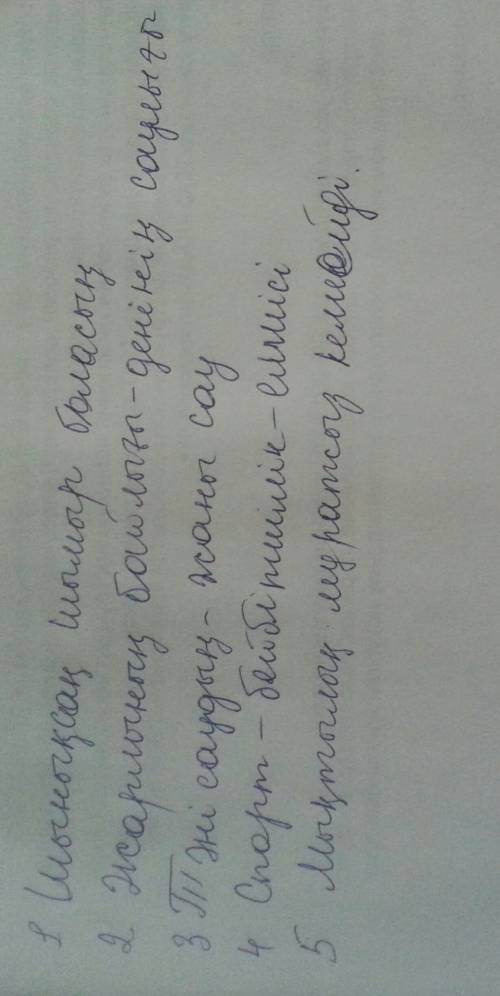 1 Шынықсаң шымыр боласың
2 Жарлының байлығы - денінің саулығы
3 Тәні саудың - жаны сау
4 Спорт - бейбітшілік - елшісі
5 Мықтылық мұратсыз келмейді.